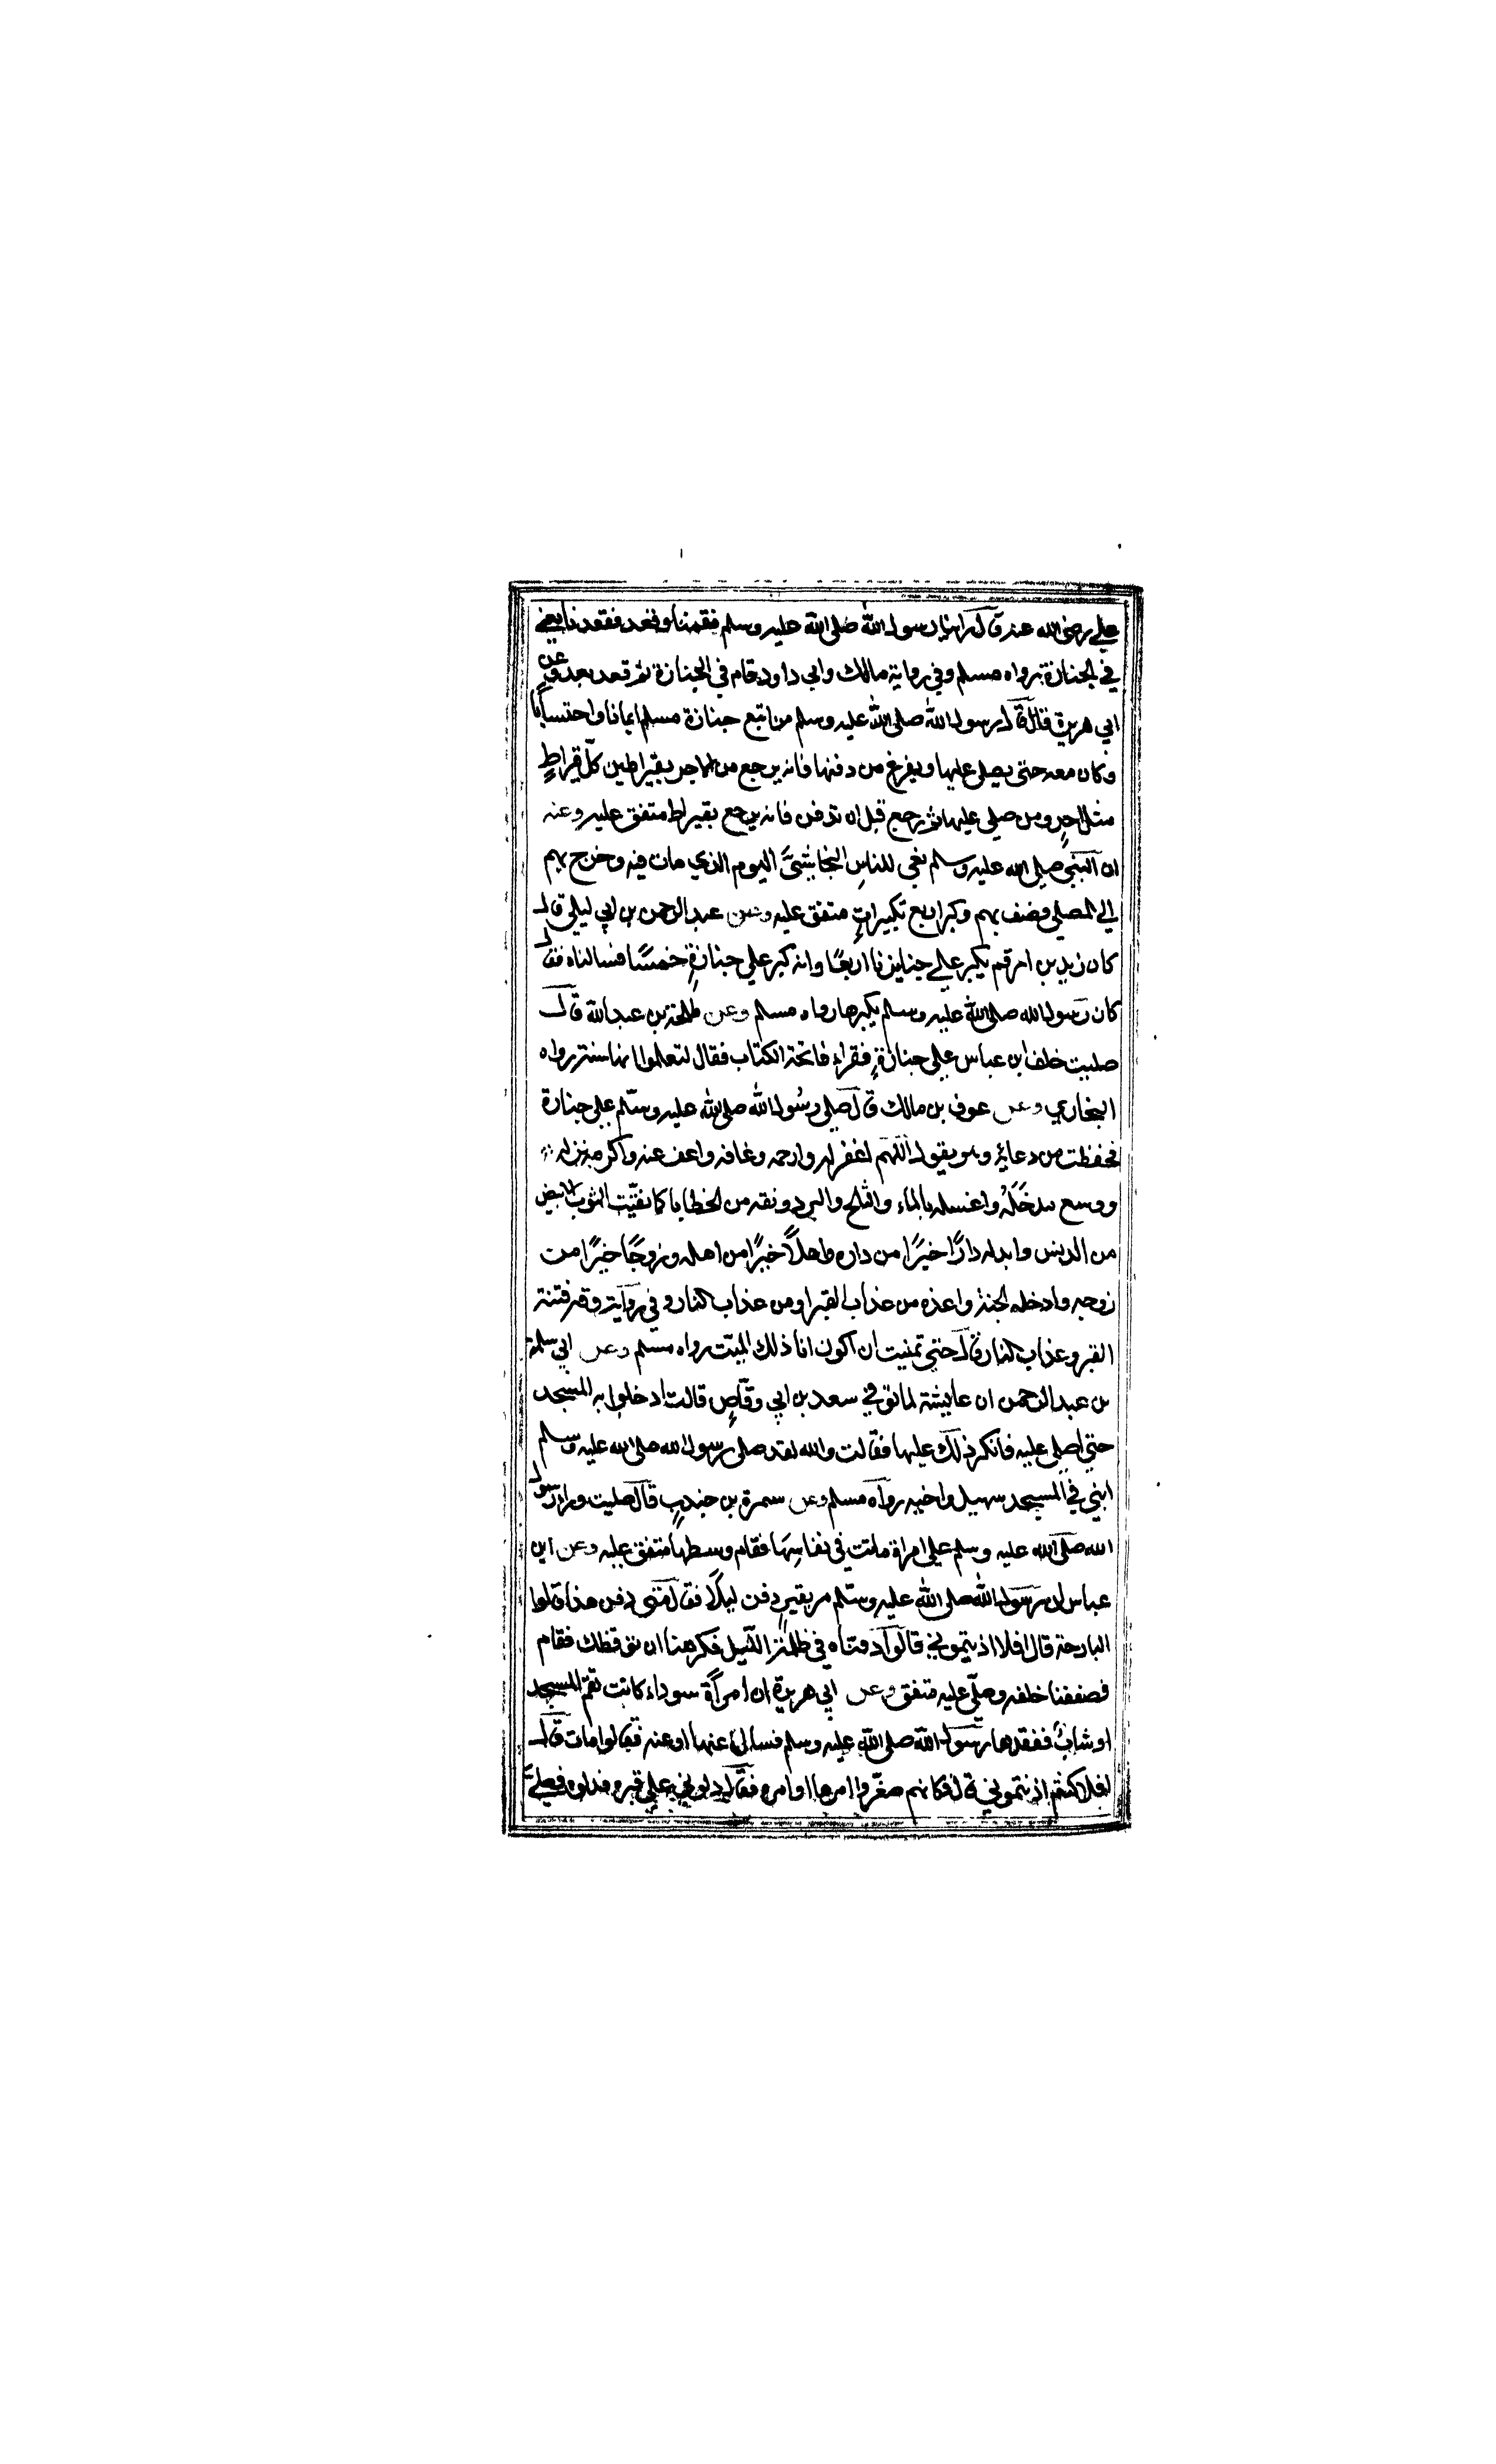 علي رضي الله عنه قال راينا رسول الله صلى الله عليه وسلم فقمنا وقعد فقعدنا يعني
في الجنازة رواه مسلم وفي رواية مالك وابي داود قام في الجنازة ثم قعد بعد وعن
ابي هريرة قال قال رسول الله صلى الله عليه وسلم من اتبع جنازة مسلم ايمانا واحتسابا
وكان معه حتى يصلي عليها ويفرغ من دفنها فانه يرجع من الاجر بقيراطين كلّ قيراطٍ
مثل احد ومن صلى عليها ثم رجع قبل ان تدفن فانه يرجع بقيراط متفق عليه وعنه
ان النبي صلى الله عليه وسلم نعي للناسِ النجاشيَّ اليوم الذي مات فيه وخرج بهم
الي المصلي فصف بهم وكبر اربع تكبيراتٍ متفق عليه وعن عبد الرحمن بن ابي ليلي قال
كان زيد بن ارقم يكبر علي جنايزنا اربعًا وانه كبر علي جنازةٍ خمسًا فسالناه فقال
كان رسول الله صلى الله عليه وسلم يكبرها رواه مسلم وعن طلحة بن عبد الله قال
صليت خلف ابن عباس علي جنازةٍ فقراء فاتحة الكتاب فقال لتعلموا انها سنة رواه
البخاري وعن عوف بن مالك قال صلي رسُول الله صلى الله عليه وسلّم علي جنازة
فحفظت من دعائه وهو يقول اللهم اغفر له وارحمه وعافه واعف عنه واكرم نزله
ووسع مدخَلَهُ واغسله بالماء والثلج والبرد ونقه من الخطايا كما نقيّت الثوب الابيض
من الدنس وابدله دارًا خيرًا من داره واهلًا خيرًا من اهله وزوجًا خيرًا من
زوجه وادخله الجنة واعذه من عذاب القبر او من عذاب النار وفي رواية وقه فتنة
القبر وعذاب النار قال حتي تمنيت ان اكون انا ذلك الميّت رواه مسلم وعن ابي سلمة
بن عبد الرحمن ان عايشة لما توفي سعد بن ابي وقّاصٍ قالت ادخلوا به المسجد
حتي اصلي عليه فانكر ذلك عليها فقالت والله لقد صلى رسول الله صلى الله عليه وسلم
ابني في المسجد سهيل واخيه رواه مسلم وعن سمرة بن جندبٍ قال صليت وراء رسول
الله صلى الله عليه وسلم علي امراة ماتت في نفاسِهَا فقام وسطها متفق عليه وعن ابن
عباس ان رسول الله صلى الله عليه وسلّم مر بقبرٍ دفن ليلًا فقال متى دفن هذا قالوا
البارحة قال افلا اذنتموني قالوا دفناه في ظلمة الليل فكرهنا ان نوقظك فقام
فصففنا خلفه وصلّي عليه متفق وعن ابي هريرة ان امرأة سوداء كانت تقمّ المسجد
او شابٌ ففقدها رسول الله صلى الله عليه وسلم فسال عنها او عنه فقالوا مات قال
افلا كنتم اذنتموني قال فكانهم صغّروا امرها او امره فقال دلوني علي قبره فدلوه فصلّي